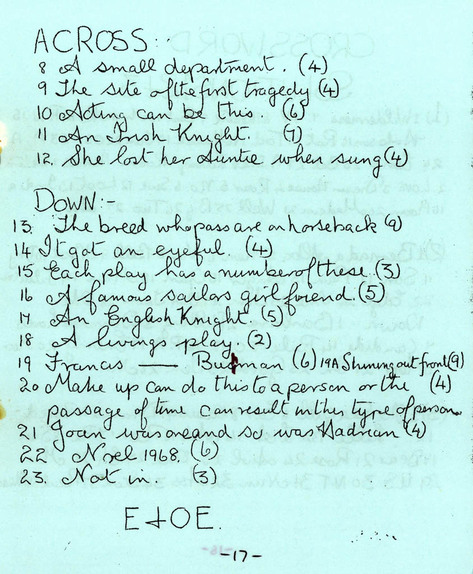 ACROSS:-
8 A small department. (4)
9 The site of the first tragedy (4)
10 Acting can be this. (6)
11 An Irish Knight. (7)
12. She lost her Auntie when sung (4)
DOWN:-
13. The breed who pass are on horseback (9)
14 It got an eyeful. (4)
15 Each play has a number of these. (3)
16 A famous sailors girl friend. (5)
17 An English Knight. (5)
18 A livings play. (2)
19 Francis —— Bushman (6) 19A Shining out front (9)
20 Make up can do this to a person or the (4)
passage of time can result in this type of person.
21 Joan was one and so was Hadrian (4)
22 Noel 1968. (6)
23. Not in. (3)
E & O E.
-17-